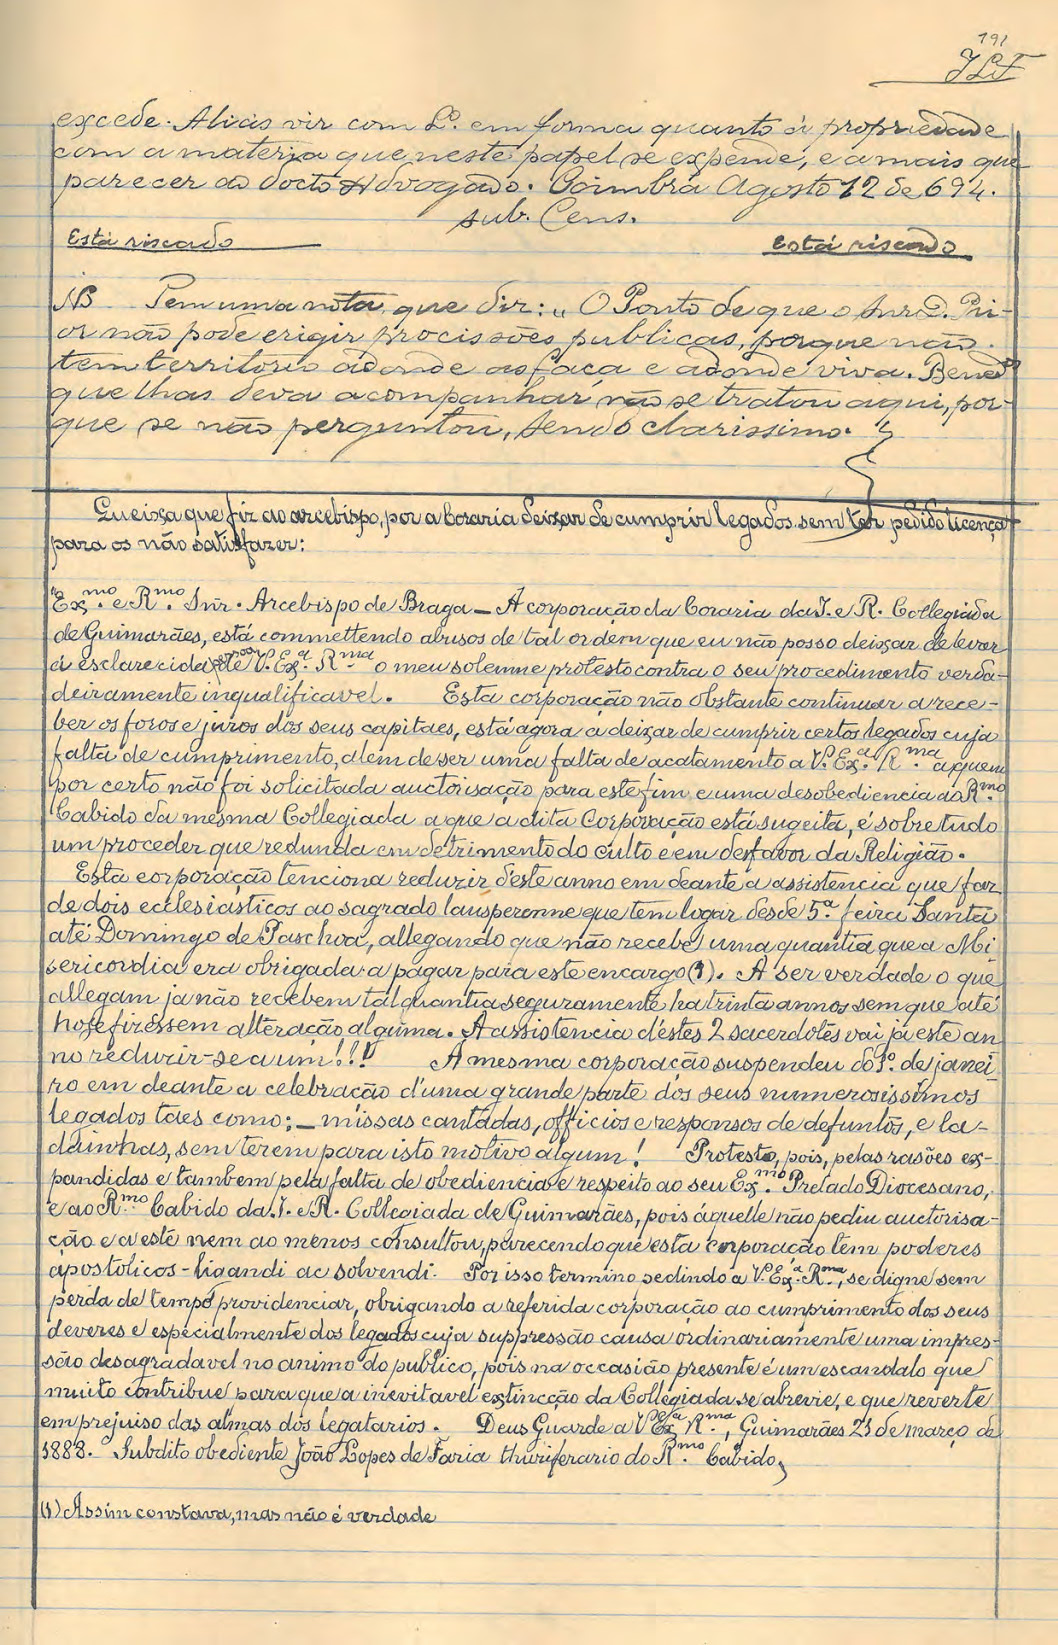 191
JLF
excede. Alias vir com L.º em forma quanto á propriedade
com a materia que neste papel se expende, e a mais que
parecer ao docto Advogado. Coimbra Agosto 12 de 694.
sub. Cens.
Está riscado Está riscado
NB Tem uma nota que diz: „ O Ponto de que o Snr D. Pri-
or não pode erigir procissões publicas, porque não
tem territorio adonde as faça e adonde viva. Bened.os
que lhas deva acompanhar não se tratou aqui, por-
que se não perguntou, sendo clarissimo. "
Queixa que fiz ao arcebispo, por a Coraria deixar de cumprir legados sem ter pedido licença
para os não satisfazer:
"Ex.mo e R.mo Snr. Arcebispo de Braga — A corporação da Coraria da I. e R. Collegiada
de Guimarães, está commettendo abusos de tal ordem que eu não posso deixar de levar
á esclarecida de V. Ex.a R.ma o meu solemne protesto contra o seu procedimento verda-
deiramente inqualificavel. Esta corporação não obstante continuar a rece-
ber os foros e juros dos seus capitaes, está agora a deixar de cumprir certos legados cuja
falta de cumprimento, alem de ser uma falta de acatamento a V. Ex.a R.ma a quem
por certo não foi solicitada auctorisação para este fim e uma desobediencia ao R.mo
Cabido da mesma Collegiada a que a dita Corporação está sugeita, é sobretudo
um proceder que redunda em detrimento do culto e em desfavor da Religião.
Esta corporação tenciona reduzir d'este anno em deante a assistencia que faz
de dois ecclesiasticos ao sagrado lausperenne que tem logar desde 5.ª feira Santa
até Domingo de Paschoa, allegando que não recebe uma quantia que a Mi
sericordia era obrigada a pagar para este encargo (1). A ser verdade o que
allegam ja não recebem tal quantia seguramente ha trinta annos sem que até
hoje fizessem alteração alguma. A assistencia d'estes 2 sacerdotes vai já este an
no reduzir-se a um!!!! A mesma corporação suspendeu do 1º. de janei
ro em deante a celebração d'uma grande parte dos seus numerosissimos
legados taes como; — missas cantadas, officios e responsos de defuntos, e la-
dainhas, sem terem para isto motivo algum! Protesto, pois, pelas rasões ex-
pandidas e tambem pela falta de obediencia e respeito ao seu Ex.mo Prelado Diocesano,
e ao R.mo Cabido da I. e R. Collegiada de Guimarães, pois áquelle não pediu auctorisa-
ção e a este nem ao menos consultou, parecendo que esta corporação tem poderes
apostolicos - ligandi ac solvendi. Por isso termino pedindo a V. Ex.a R.ma, se digne sem
perda de tempo providenciar, obrigando a referida corporação ao cumprimento dos seus
deveres e especialmente dos legados cuja suppressão causa ordinariamente uma impres-
são desagradavel no animo do publico, pois na occasião presente é um escandalo que
muito contribue para que a inevitavel extincção da Collegiada se abrevie, e que reverte
em prejuiso das almas dos legatarios. Deus Guarde a V. Ex.a R.ma, Guimarães 21 de março de
1888. Subdito obediente João Lopes de Faria thuriferario do R.mo Cabido,
(1) Assim constava, mas não é verdade